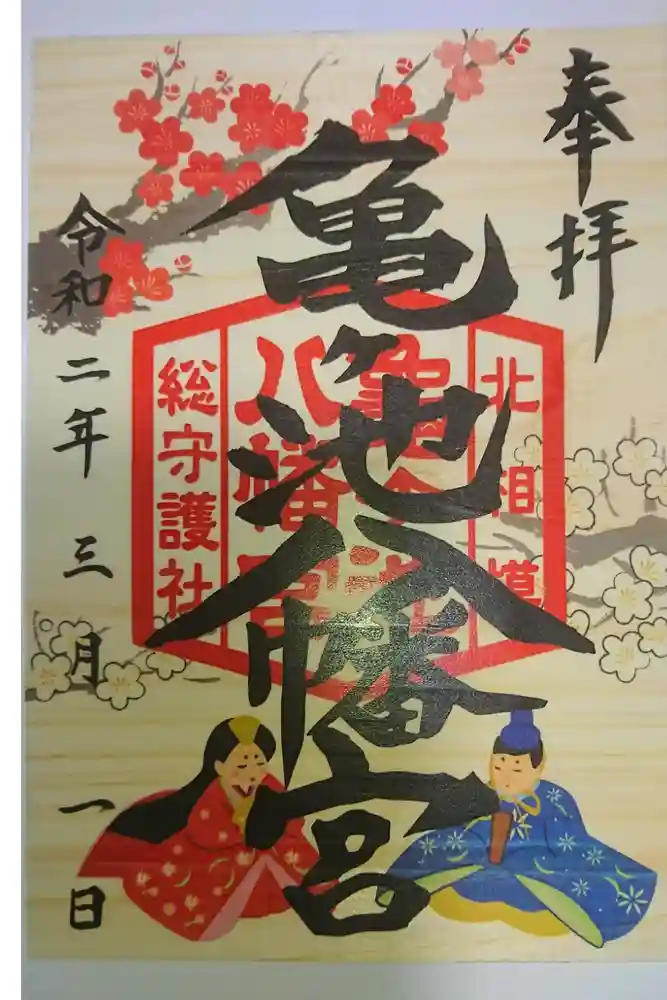 奉拝
亀ヶ池八幡宮
北相模
総守護社
令和二年三月一日